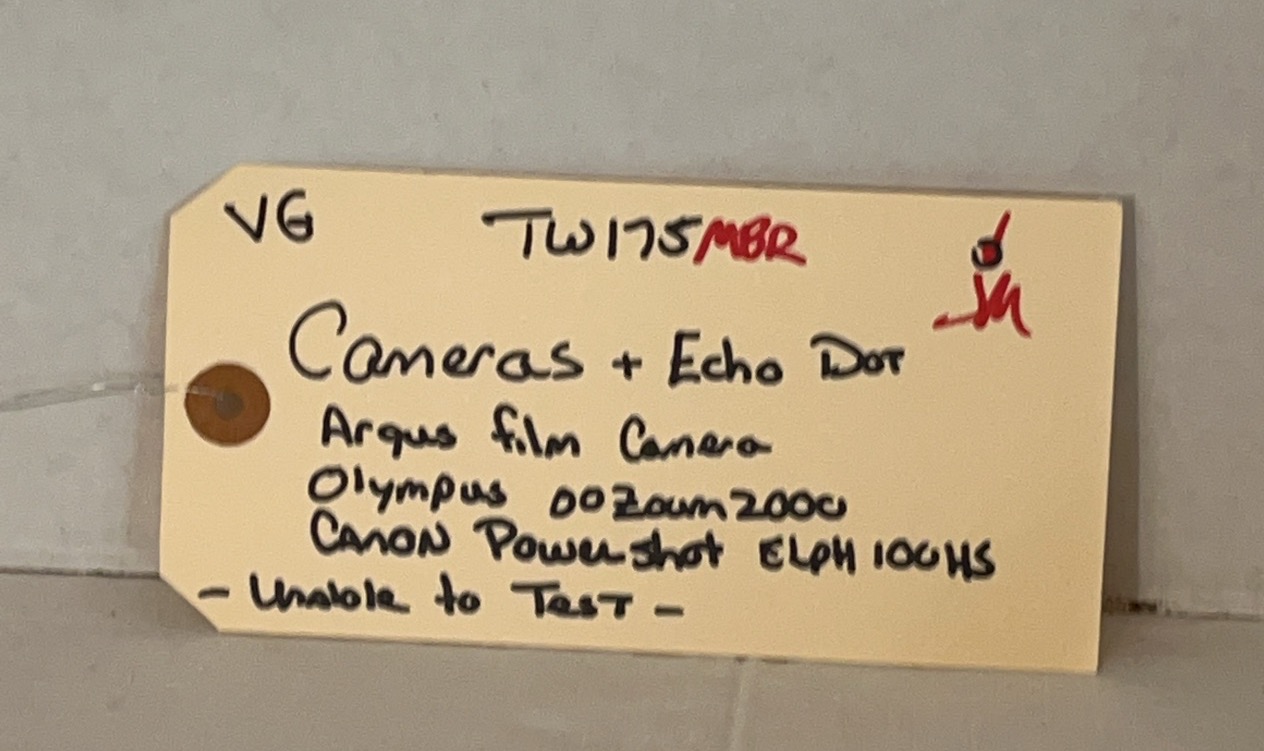 VG TW175MBR
Cameras + Echo Dot
Argus film Camera
Olympus 00Zoom2000
Canon Powershot ELPH 100HS
- Unable to Test -